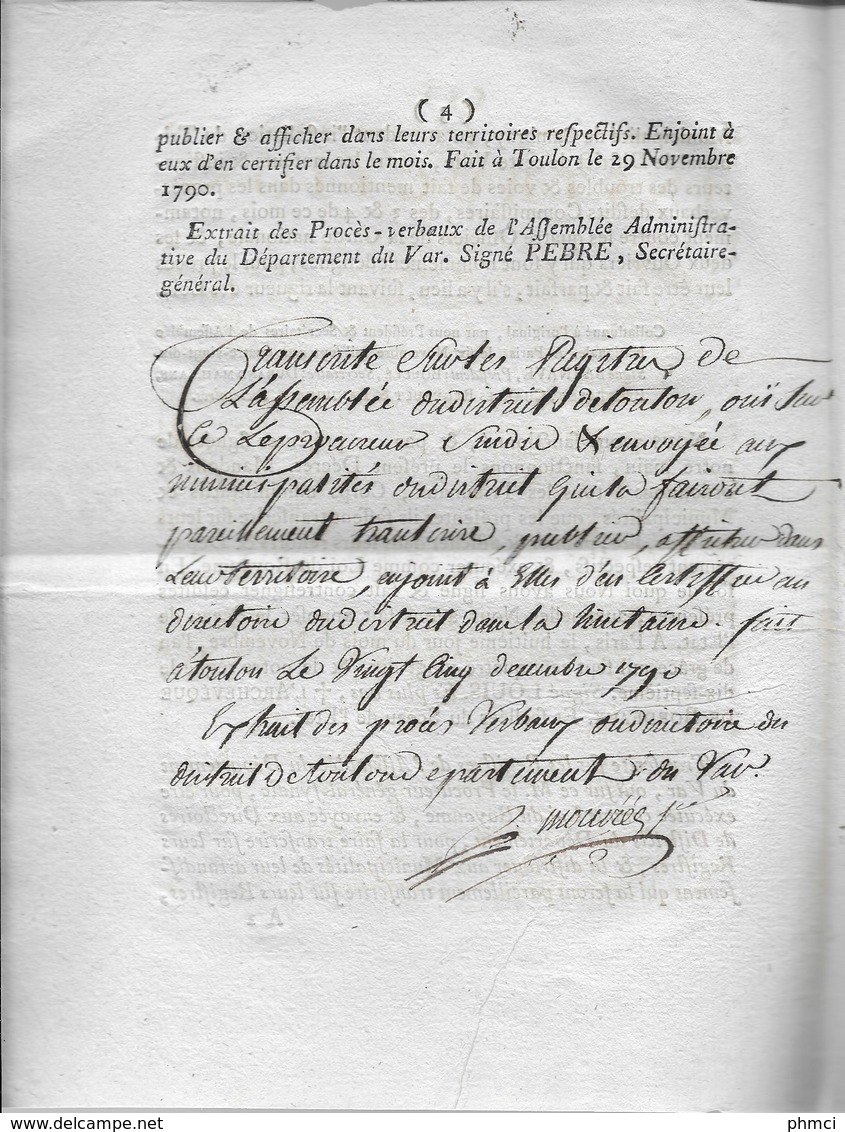 ( 4 )
publier & afficher dans leurs territoires reſpectifs. Enjoint à
eux d'en certifier dans le mois. Fait à Toulon le 29 Novembre
1790.
Extrait des Procès-verbaux de l'Aſſemblée Adminiſtra-
tive du Département du Var. Signé PEBRE, Secrétaire-
général.
transcrite sur les Registres de
L'assemblée du district de toulon, ouï sur
ce Le procureur Sindic & envoyée aux
municipalités du district qui la fairont
pareillement transcrire, publier, afficher dans
Leur territoire, enjoint à Elles d'en Certiffier au
directoire du district dans la huitaine. fait
à toulon Le Vingt Cinq decembre 1790
Extrait des procès Verbaux du directoire du
district de toulon departement du Var.
mouriés
delcampe.net
phmci